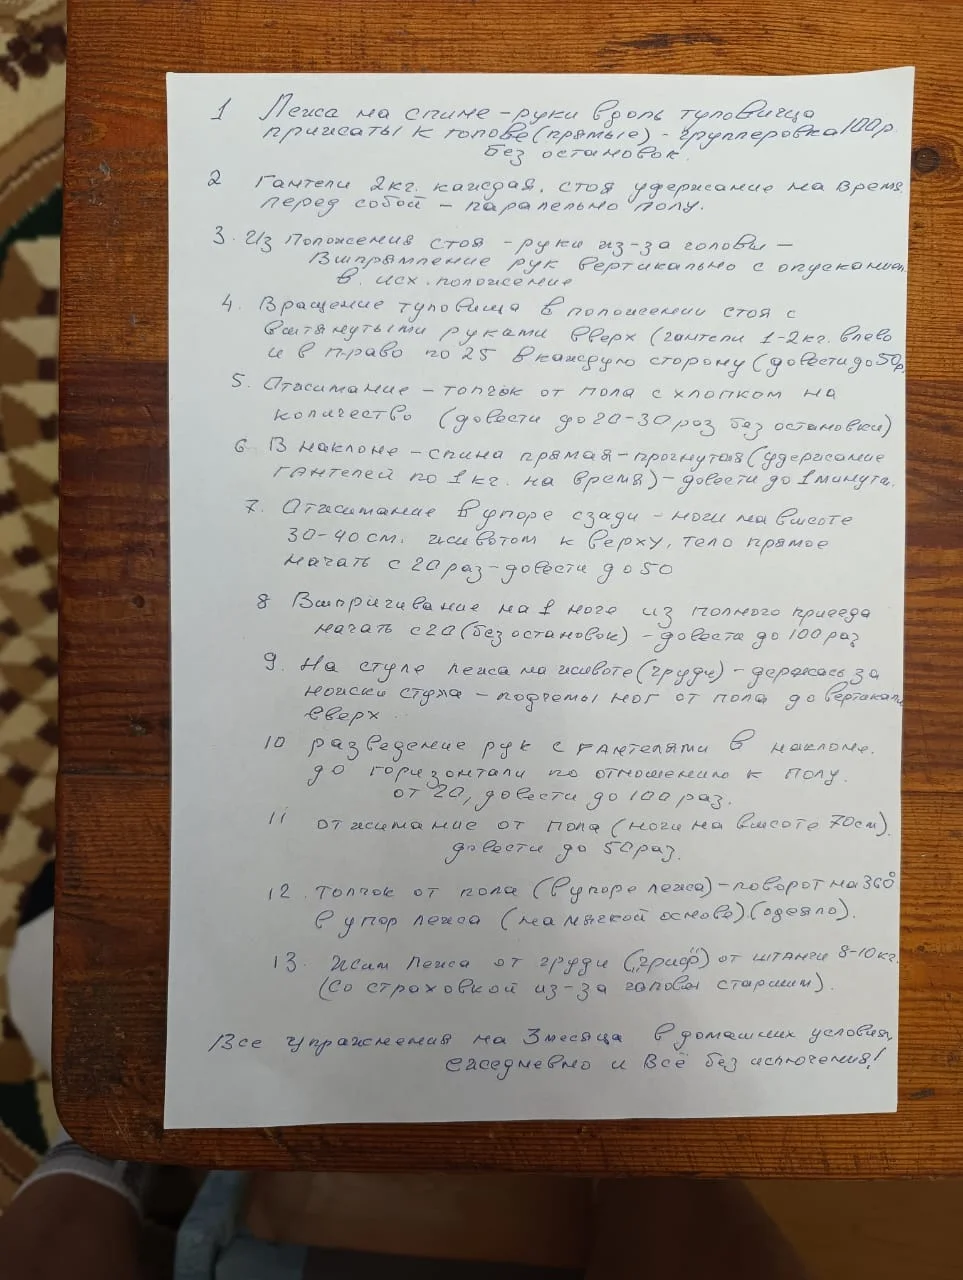 1 Лежа на спине - руки вдоль туловища
прижаты к голове (прямые) - группировка 100 р.
без остановок.
2 Гантели 2кг. каждая. стоя удержание на время
перед собой - паралельно полу.
3. Из Положения стоя - руки из-за головы -
Выпрямление рук вертикально с опусканием
в. исх. положение
4. Вращение туловища в положении стоя с
вытянутыми руками вверх (гантели 1-2кг. влево
и в право по 25 в каждую сторону (довести до 50р.
5. Отжимание - толчок от пола с хлопком на
количество (довести до 20-30 раз без остановки)
6. В наклоне - спина прямая - прогнутая (удержание
гантелей по 1 кг. на время) - довести до 1 минуты.
7. Отжимание в упоре сзади - ноги на высоте
30-40 см. животом к верху, тело прямое
начать с 20 раз - довести до 50
8 Выпригивание на 1 ноге из полного приседа
начать с 20 (без остановок) - довести до 100 раз
9. На стуле лежа на животе (груди) - держась за
ножки стула - подъемы ног от пола до вертикали
вверх.
10 разведение рук с гантелями в наклоне.
до горизонтали по отношению к полу.
от 20, довести до 100 раз.
11 отжимание от пола (ноги на высоте 70см).
довести до 50 раз.
12. толчок от пола (в упоре лежа) - поворот на 360°
в упор лежа (на мягкой основе) (одеяло).
13. Жим Лежа от груди ("гриф") от штанги 8-10 кг.
(со страховкой из-за головы старшим).
Все упражнения на 3 месяца в домашних условия,
ежедневно и Всё без исключения!